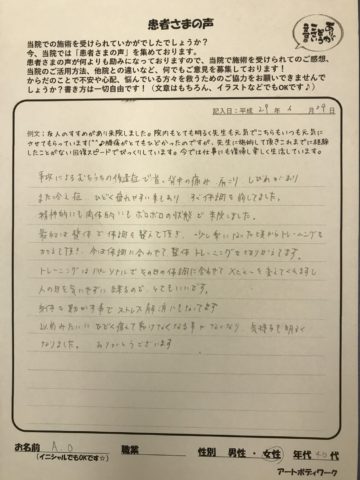 患者さまの声
当院での施術を受けられていかがでしたでしょうか?
今、当院では「患者さまの声」を集めております。
患者さまの声が何よりも励みになっておりますので、当院で施術を受けられてのご感想、
当院のご活用方法、他院との違いなど、何でもご意見を募集しております!
からだのことで不安や心配、悩んでいる方々を救うためのご協力をお願いできませんで
しょうか?書き方は一切自由です!(文章はもちろん、イラストなどでもOKです♪)
記入日:平成 29年 月 29日
例文:友人のすすめがあり来院しました。院内もとても明るく先生も元気でこちらもいつも元気に
させてもらっています(^^♪腰痛がとてもひどかったのですが、先生に施術して頂きこれまでに経験
したことがない回復スピードでびっくりしています。今では仕事にも復帰し楽しく生活しています。
事故によるむちうちの後遺症で首、背中の痛み 肩こり しびれがあり
また冷え症 ひどく疲れやすい事もあり すぐ体調を崩してました。
精神的にも肉体的にもボロボロの状態で来院しました。
最初は整体で体調を整えて頂き、少し楽になった頃からトレーニングも
して頂き、今は体調に合わせて整体 トレーニングを
トレーニングは パーソナルでその日の体調に合わせて メニューを変えてくれますし
人の目を気にせずに出来るので、とてもいいです。
好きな事でストレス解消にもなってます
以前みたいに ひどく痛くて動けなくなる事がなくなり 気持ちも明るく
なりました。 ありがとうございます
お名前 A.O 職業 性別 男性・女性 年代 40代
(イニシャルでもOKです☆)
アートボディワーク